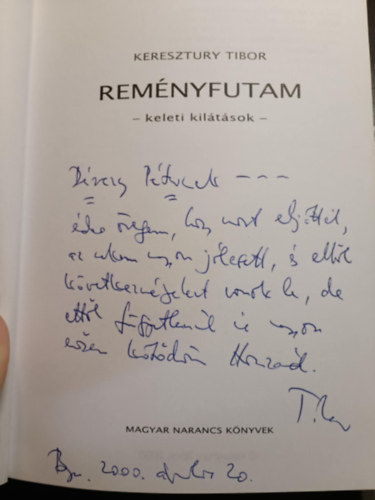 KERESZTURY TIBOR
REMÉNYFUTAM
– keleti kilátások –
Péternek – – –
édes öregem, hogy most eljöttél,
az nekem nagyon jólesett, és ebből
következményeket vonok le, de
ettől függetlenül is nagyon
erősen kötődöm Hozzád.
Tibor
MAGYAR NARANCS KÖNYVEK
Bp. 2000. április 20.